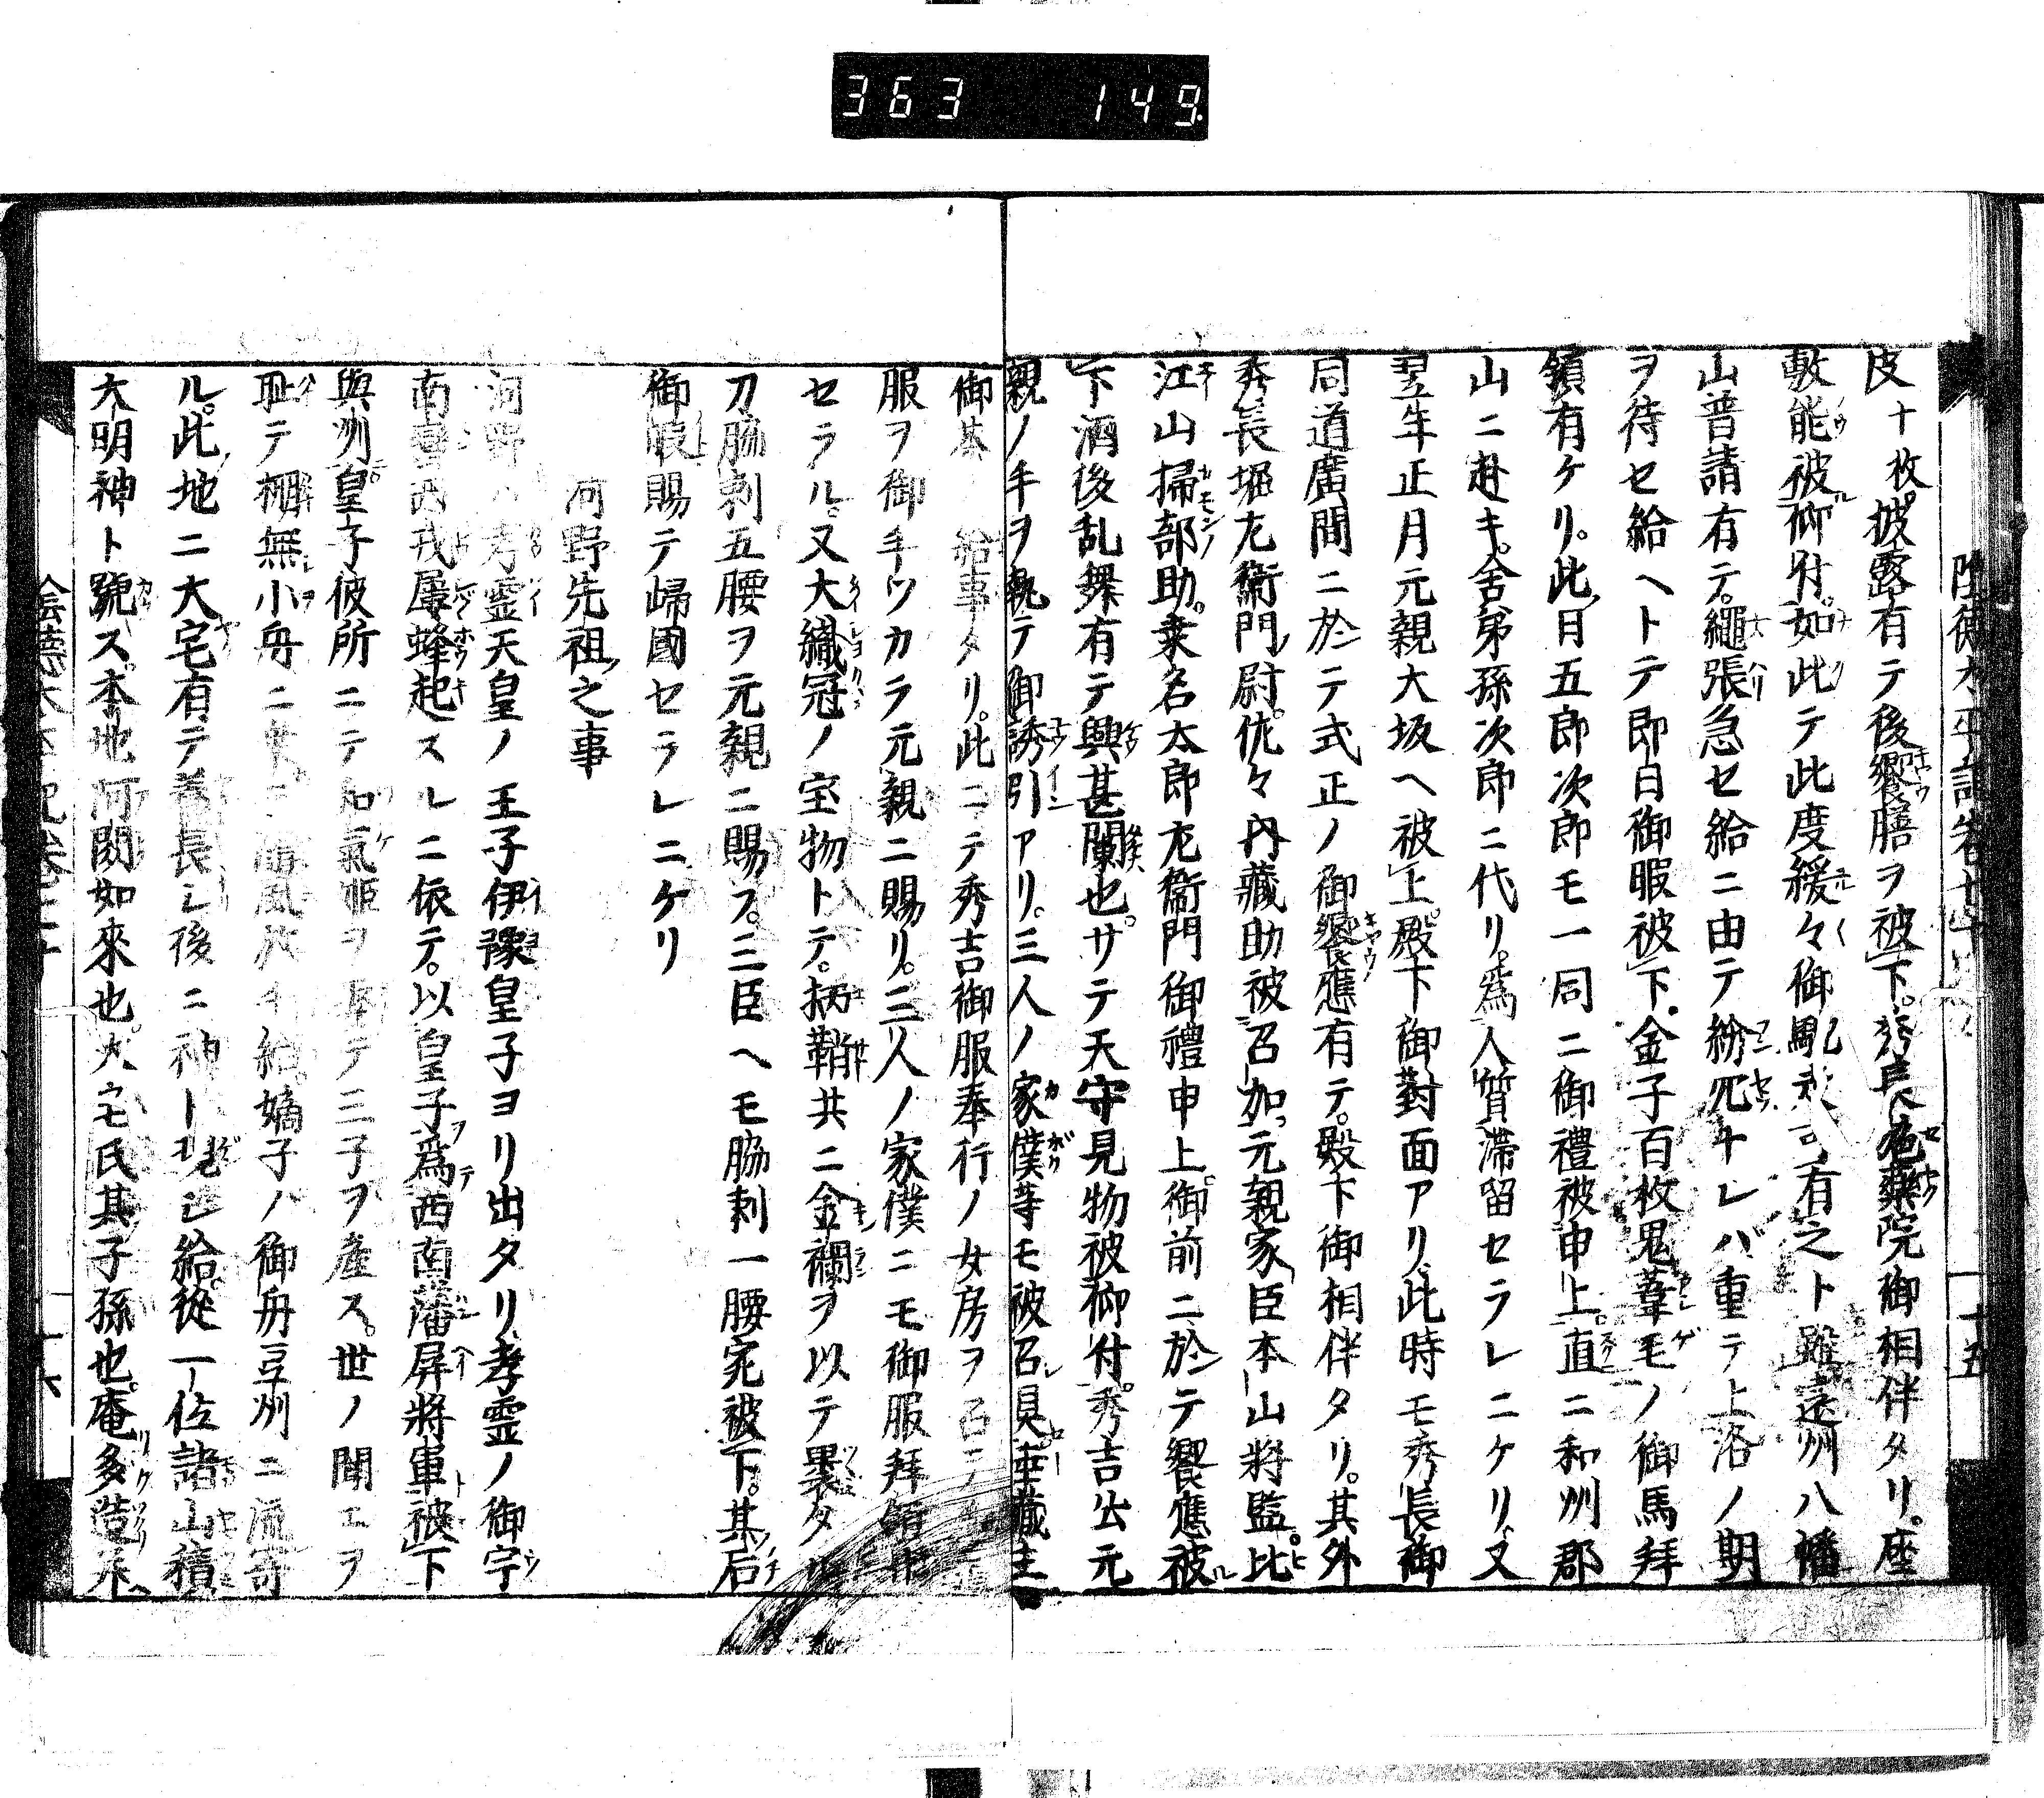 363 149
陰徳太平記巻
十五
皮十枚披露有テ後饗膳ヲ被下。秀長施薬院御相伴タリ。座
敷能被仰付。如此テ此度緩々御有之ト雖遠州八幡
山普請有テ。繩張急セ給ニ由テ紛冗ナレバ重テ上洛ノ期
ヲ待セ給ヘトテ即日御暇被下。金子百枚鬼葦毛ノ御馬拜
領有ケリ。此日五郎次郎モ一同ニ御禮被申上。直ニ和州郡
山ニ赴キ。舎弟孫次郎ニ代リ。爲人質滞留セラレニケリ。又
翌年正月元親大坂ヘ被上。殿下御對面アリ。此時モ秀長御
同道廣間ニ於テ式正ノ御饗應有テ。殿下御相伴タリ。其外
秀長堀左衛門尉。佐々内藏助被召加。元親家臣本山將監。比
江山掃部助。桒名太郎左衛門御禮申上。御前ニ於テ饗應被
下酒後乱舞有テ興甚闌也。サテ天守見物被仰付。秀吉公元
親ノ手ヲ執テ御誘引アリ。三人ノ家僕等モ被召具。
御 給事タリ。此ニテ秀吉御服奉行ノ女房ヲ召
服ヲ御手ツカラ元親ニ賜リ。三人ノ家僕ニモ御服拜領
セラル。又大織冠ノ宝物トテ。柄鞘共ニ金襴ヲ以テ裹タル
刀脇刺五腰ヲ元親ニ賜フ。三臣ヘモ脇刺一腰宛被下。其后
御暇賜テ歸國セラレニケリ
河野先祖之事
河野ハ孝霊天皇ノ王子伊豫皇子ヨリ出タリ。孝霊ノ御宇
南蠻西戎屡蜂起スルニ依テ。以皇子爲西南藩屏將軍被下
與洲皇子彼所ニテ和氣姫ヲ テ三子ヲ産ス。世ノ聞エヲ
耻テ棚無小舟ニ 給。嫡子ノ御舟豆州ニ流寄
ル。此地ニ大宅有テ養長シ後ニ神ト現シ給。從一位諸山積
大明神ト號ス。本地阿閦如來也。大宅氏其子孫也。庵多造
陰徳太平記巻
十六